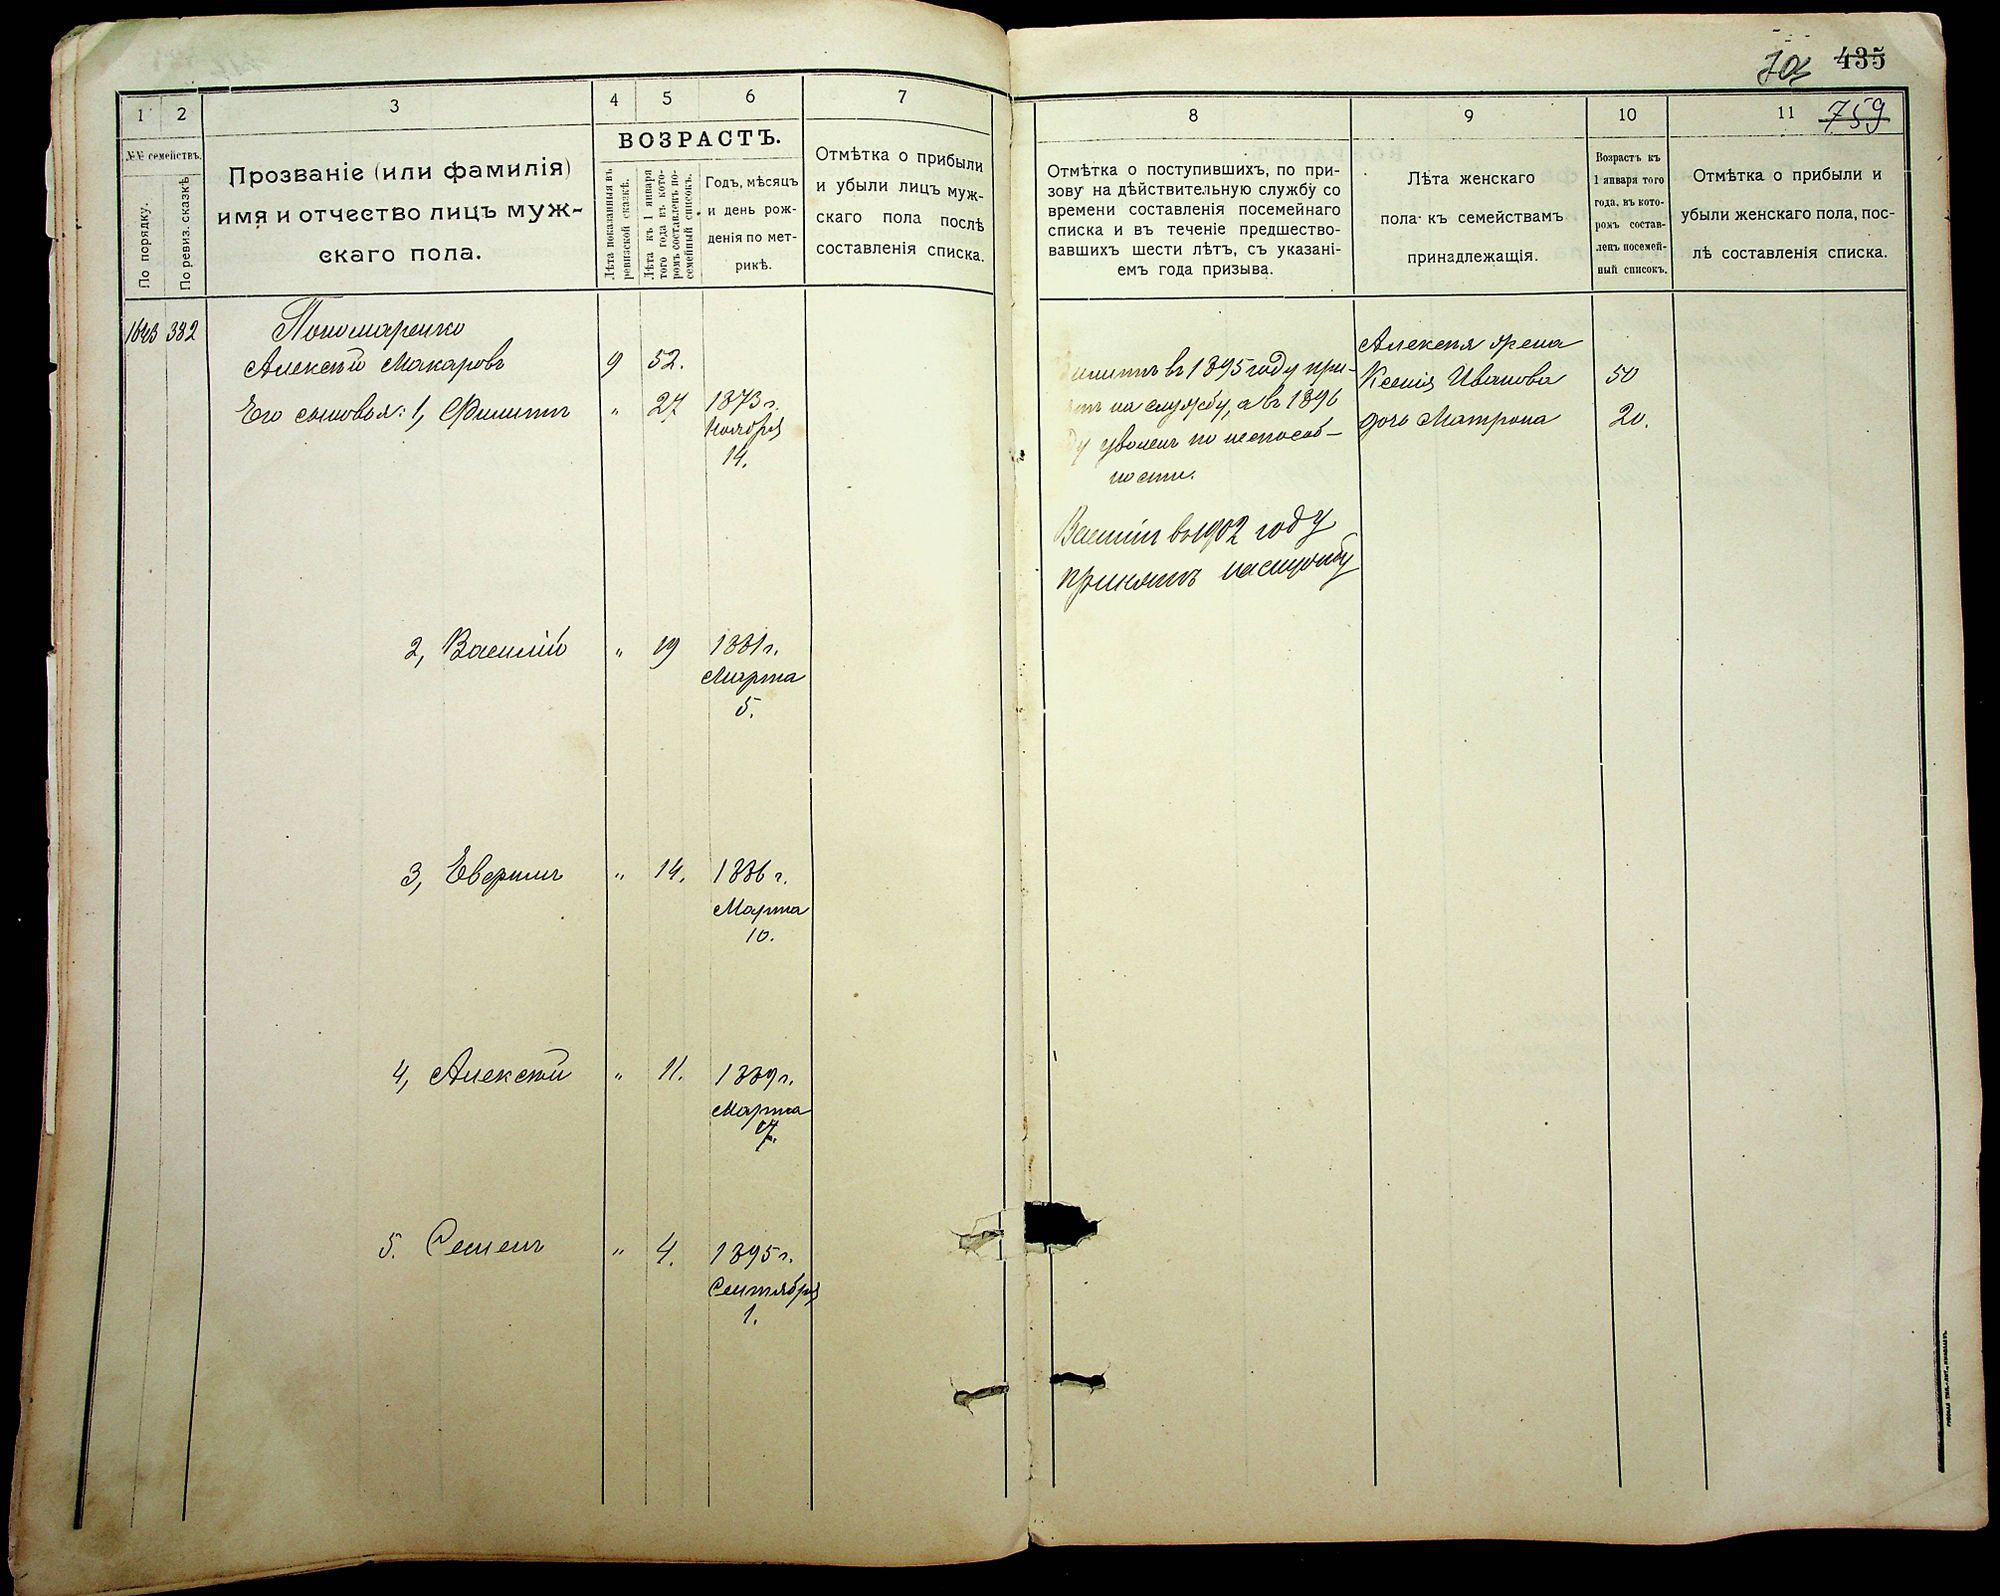 435
759
1
2
3
4
5
6
7
№№ семействъ.
По порядку.
По ревиз. сказкѣ
Прозваніе (или фамилія)
имя и отчество лицъ муж-
скаго пола.
ВОЗРАСТЪ.
Лѣта показанныя въ
ревизской сказкѣ.
Лѣта къ 1 января
того года въ кото-
ромъ составленъ по-
семейный списокъ.
Годъ, мѣсяцъ
и день рож-
денія по мет-
рикѣ.
Отмѣтка о прибыли
и убыли лицъ муж-
скаго пола послѣ
составленія списка.
1643 382
Пономаренко
Алексѣй Макаровъ 9 52.
Его сыновья: 1, Филиппъ " 27 1873 г.
Ноября
14.
2, Василій " 19 1881 г.
Марта
5.
3, " 14. 1886 г.
Марта
10.
4, Алексѣй " 11. 1889 г.
Марта
17.
5. Семенъ " 4. 1895 г.
Сентября
1.
8
9
10
11
Отмѣтка о поступившихъ, по при-
зову на дѣйствительную службу со
времени составленія посемейнаго
списка и въ теченіе предшество-
вавшихъ шести лѣтъ, съ указані-
емъ года призыва.
Лѣта женскаго
пола къ семействамъ
принадлежащія.
Возрастъ къ
1 января того
года, въ кото-
ромъ состав-
ленъ посемей-
ный списокъ.
Отмѣтка о прибыли и
убыли женскаго пола, пос-
лѣ составленія списка.
илиппъ въ 1895 году при-
тъ на службу, а въ 1896
ду уволенъ по неспособ-
ности.
Василій въ 1902 году
принятъ на службу
Алексѣя жена
Ксенія Иванова 50
дочь Матрона 20.